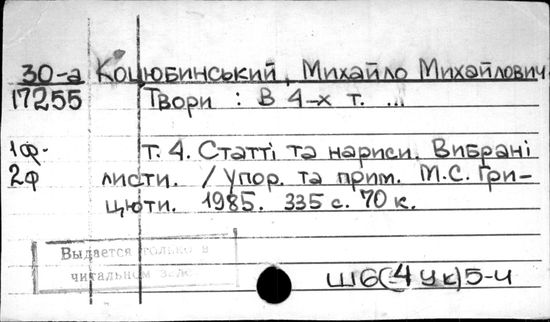 30-а Коцюбинський, Михайло Михайлович
17255 Твори : В 4-х т. ...
1ф. т. 4. Статті та нариси. Вибрані
2ф листи. / Упор. та прим. М.С. Гри-
цюти. 1985. 335 с. 70 к.
Выдается только в
читальном зале
Ш6(4Ук)5-4